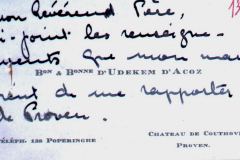 mon Révérend Père,
ci-joint les renseigne-
ments que mon mari
BON & BONNE D'UDEKEM D'ACOZ
vient de me rapporter
de Proven.
TÉLÉPH. 138 POPERINGHE
CHATEAU DE COUTHOVE
PROVEN.